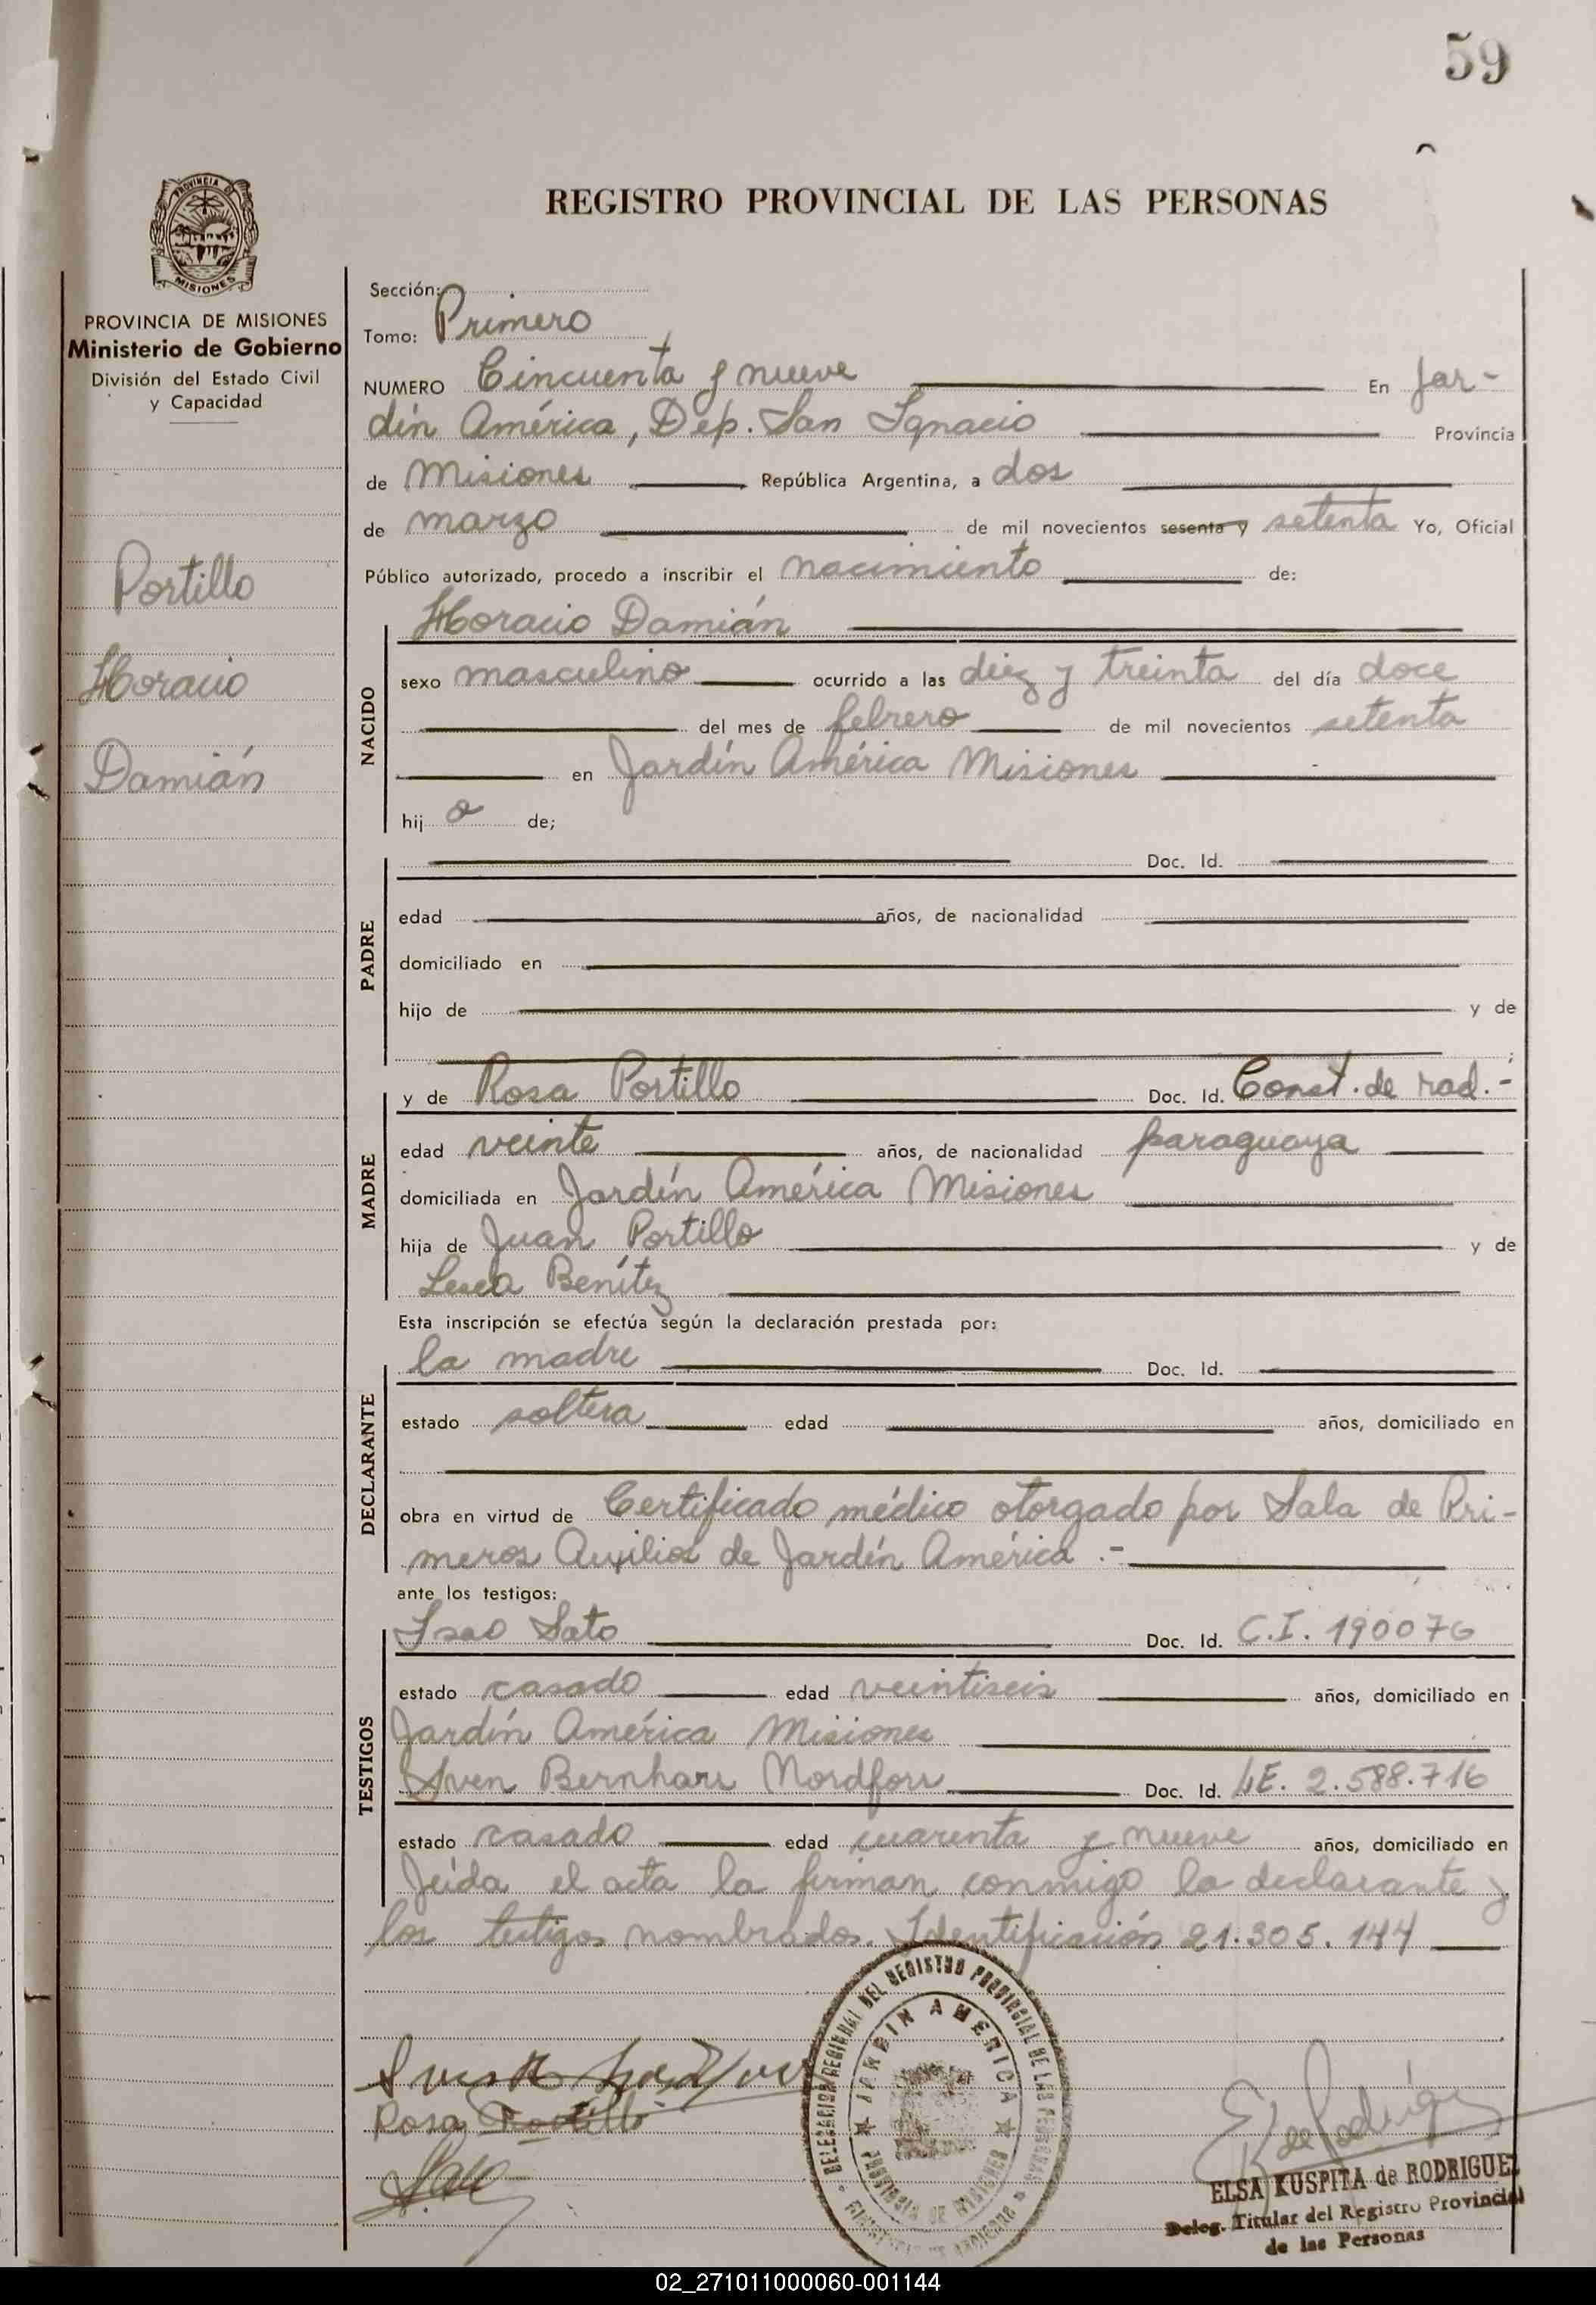 59
REGISTRO PROVINCIAL DE LAS PERSONAS
PROVINCIA DE
MISIONES
PROVINCIA DE MISIONES
Ministerio de Gobierno
División del Estado Civil
y Capacidad
Portillo
Horacio
Damián
Sección:
Tomo: Primero
NUMERO Cincuenta y nueve En Jar-
dín América, Dep. San Ignacio Provincia
de Misiones República Argentina, a dos
de marzo de mil novecientos sesenta y setenta Yo, Oficial
Público autorizado, procedo a inscribir el nacimiento de:
NACIDO
Horacio Damián
sexo masculino ocurrido a las diez y treinta del día doce
del mes de febrero de mil novecientos setenta
en Jardín América Misiones
hij o de;
PADRE
Doc. Id.
edad años, de nacionalidad
domiciliado en
hijo de y de
;
MADRE
y de Rosa Portillo Doc. Id. Const. de rad.-
edad veinte años, de nacionalidad paraguaya
domiciliada en Jardín América Misiones
hija de Juan Portillo y de
Benítez
Esta inscripción se efectúa según la declaración prestada por:
DECLARANTE
la madre Doc. Id.
estado soltera edad años, domiciliado en
obra en virtud de Certificado médico otorgado por Sala de Pri-
meros Auxilios de Jardín América .-
ante los testigos:
TESTIGOS
Isao Sato Doc. Id. C.I. 190076
estado casado edad veintiseis años, domiciliado en
Jardín América Misiones
Sven Bernhard Doc. Id. L.E. 2.588.716
estado casado edad cuarenta y nueve años, domiciliado en
Leída el acta la firman conmigo la declarante y
los testigos nombrados. Identificación 21.305.144
Rosa Portillo
DELEGACION REGIONAL DEL REGISTRO PROVINCIAL DE LAS PERSONAS
JARDIN AMERICA
PROVINCIA DE MISIONES
E K de Rodríguez
ELSA KUSPITA de RODRIGUEZ
Deleg. Titular del Registro Provincial
de las Personas
02_271011000060-001144